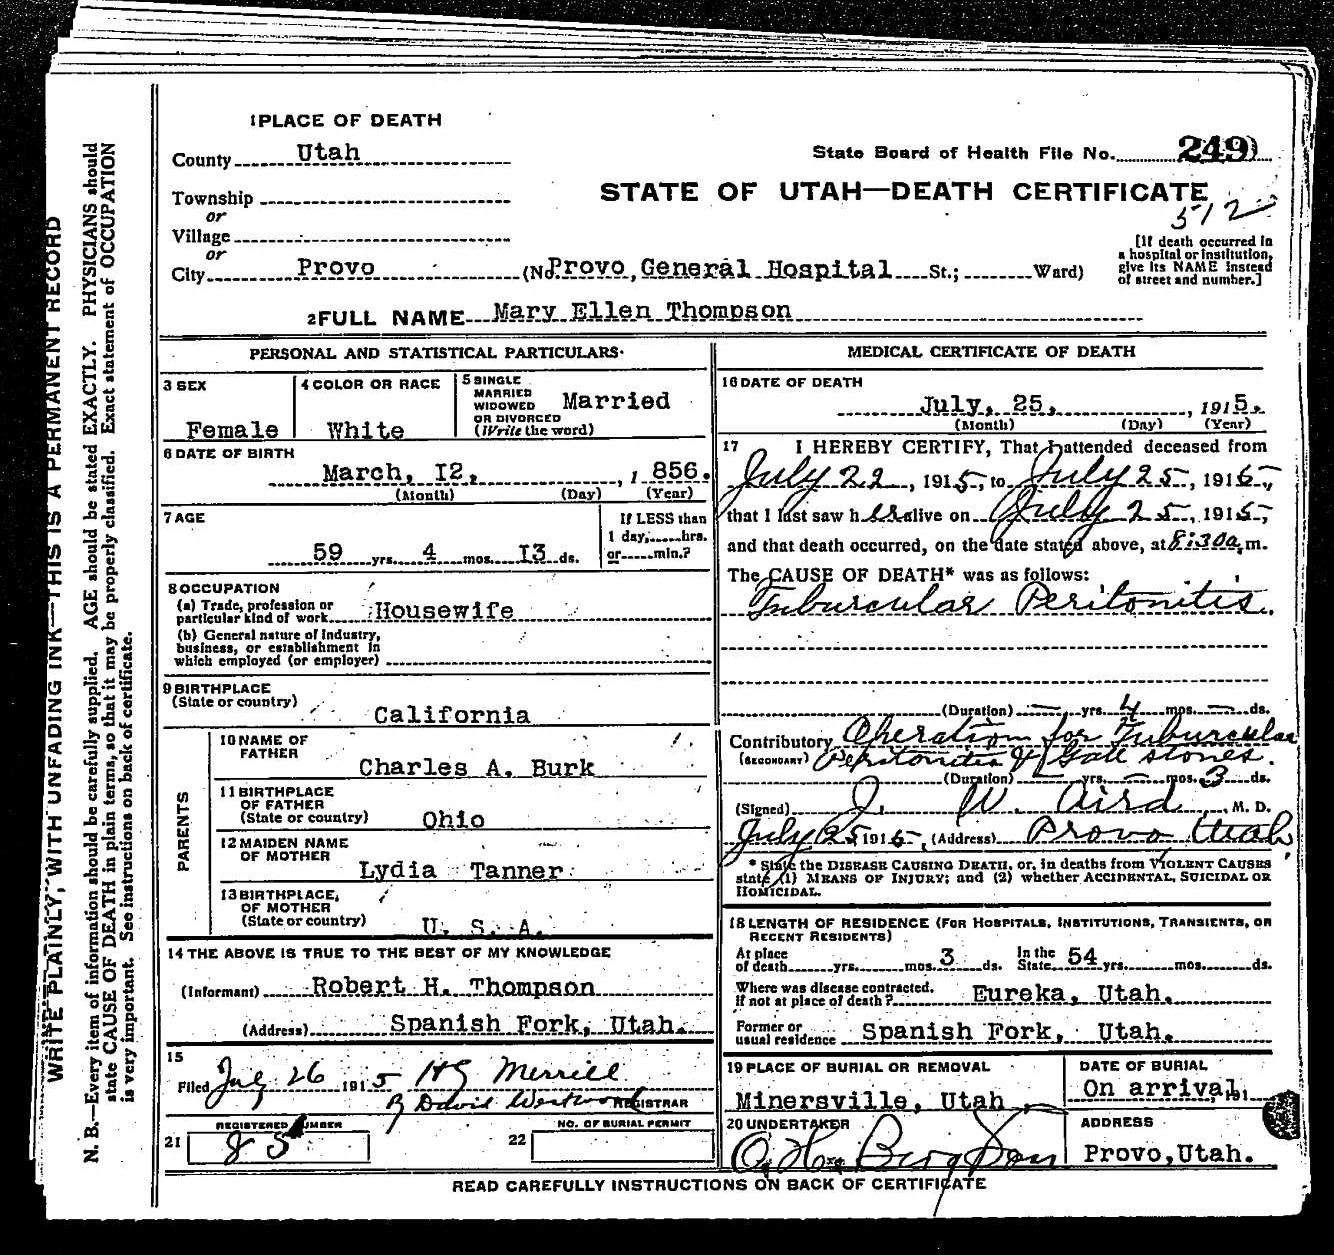 1 PLACE OF DEATH
County Utah
State Board of Health File No. 249
Township
or
STATE OF UTAH—DEATH CERTIFICATE
512
Village
or
City Provo (No Provo General Hospital St.; Ward)
[If death occurred in
a hospital or institution,
give its NAME instead
of street and number.]
2 FULL NAME Mary Ellen Thompson
PERSONAL AND STATISTICAL PARTICULARS
3 SEX
Female
4 COLOR OR RACE
White
5 SINGLE
MARRIED
WIDOWED
OR DIVORCED
(Write the word)
Married
6 DATE OF BIRTH
March, I2, , 1856.
(Month) (Day) (Year)
7 AGE
59 yrs. 4 mos. I3 ds.
If LESS than
1 day,.....hrs.
or.....min.?
8 OCCUPATION
(a) Trade, profession or
particular kind of work Housewife
(b) General nature of Industry,
business, or establishment in
which employed (or employer)
9 BIRTHPLACE
(State or country)
California
PARENTS
10 NAME OF
FATHER
Charles A. Burk
11 BIRTHPLACE
OF FATHER
(State or country) Ohio
12 MAIDEN NAME
OF MOTHER
Lydia Tanner
13 BIRTHPLACE
OF MOTHER
(State or country) U. S. A.
14 THE ABOVE IS TRUE TO THE BEST OF MY KNOWLEDGE
(Informant) Robert H. Thompson
(Address) Spanish Fork, Utah.
15
Filed July 26 1915 H G Merrill
By David Westwood REGISTRAR
REGISTERED NUMBER
21 85
NO. OF BURIAL PERMIT
22
MEDICAL CERTIFICATE OF DEATH
16 DATE OF DEATH
July, 25, , 1915.
(Month) (Day) (Year)
17 I HEREBY CERTIFY, That I attended deceased from
July 22, 1915, to July 25, 1915,
that I last saw her alive on July 25, 1915,
and that death occurred, on the date stated above, at 8:30 a. m.
The CAUSE OF DEATH* was as follows:
Tuburcular Peritonitis.
(Duration) — yrs. 4 mos. — ds.
Contributory Operation for Tuburcular
(SECONDARY) Peritonitis & Gall stones.
(Duration) — yrs. — mos. 3 ds.
(Signed) J. W. Aird, M. D.
July 25 1915, (Address) Provo Utah
* State the DISEASE CAUSING DEATH, or, in deaths from VIOLENT CAUSES
state (1) MEANS OF INJURY; and (2) whether ACCIDENTAL, SUICIDAL OR
HOMICIDAL.
18 LENGTH OF RESIDENCE (FOR HOSPITALS, INSTITUTIONS, TRANSIENTS, OR
RECENT RESIDENTS)
At place
of death yrs. mos. 3 ds. In the
State 54 yrs. mos. ds.
Where was disease contracted,
if not at place of death? Eureka, Utah.
Former or
usual residence Spanish Fork, Utah.
19 PLACE OF BURIAL OR REMOVAL
Minersville, Utah
DATE OF BURIAL
On arrival, 191
20 UNDERTAKER
O. H. Berg & Son
ADDRESS
Provo, Utah.
READ CAREFULLY INSTRUCTIONS ON BACK OF CERTIFICATE
WRITE PLAINLY, WITH UNFADING INK—THIS IS A PERMANENT RECORD
N. B.—Every item of information should be carefully supplied. AGE should be stated EXACTLY. PHYSICIANS should
state CAUSE OF DEATH in plain terms, so that it may be properly classified. Exact statement of OCCUPATION
is very important. See instructions on back of certificate.